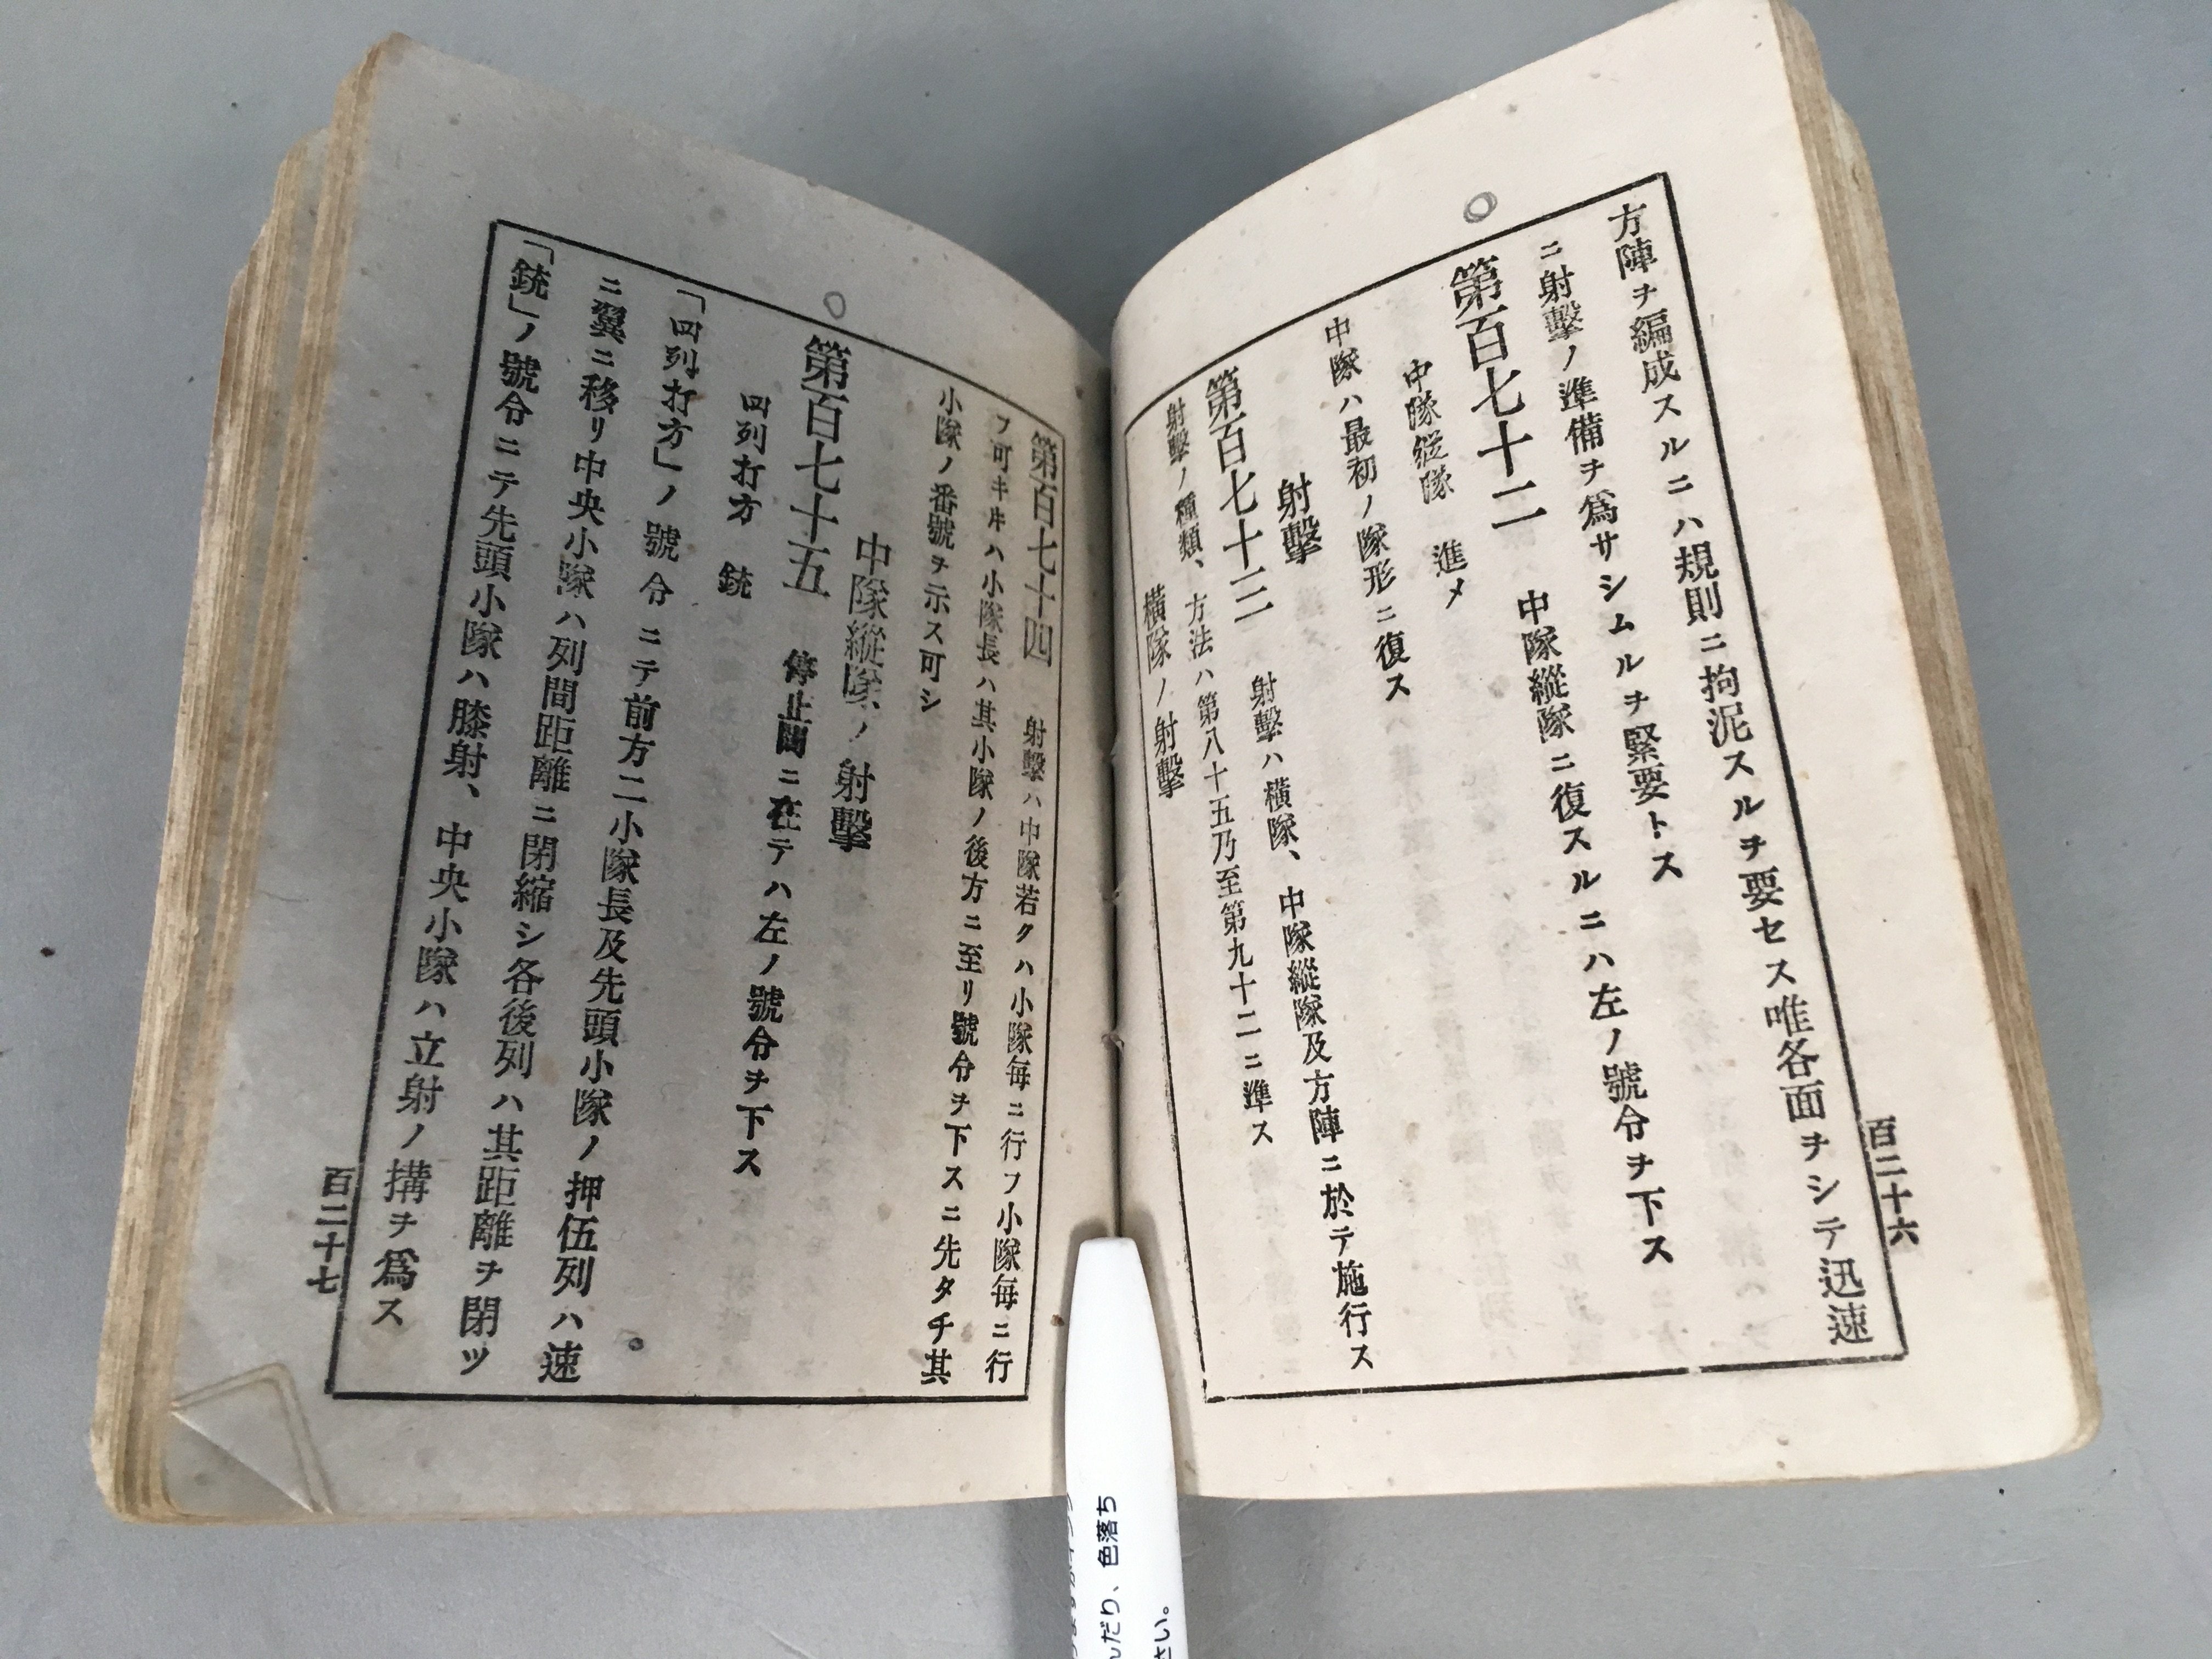 方陣ヲ編成スルニハ規則ニ拘泥スルヲ要セス唯各面ヲシテ迅速
ニ射擊ノ準備ヲ爲サシムルヲ緊要トス
第百七十二　中隊縱隊ニ復スルニハ左ノ號令ヲ下ス
中隊縱隊　進メ
中隊ハ最初ノ隊形ニ復ス
射擊
第百七十三　射擊ハ橫隊、中隊縱隊及方陣ニ於テ施行ス
射擊ノ種類、方法ハ第八十五乃至第九十二ニ準ス
橫隊ノ射擊
百二十六
第百七十四　射擊ハ中隊若クハ小隊每ニ行フ小隊每ニ行
フ可キキハ小隊長ハ其小隊ノ後方ニ至リ號令ヲ下スニ先タチ其
小隊ノ番號ヲ示ス可シ
中隊縱隊ノ射擊
第百七十五　停止間ニ在テハ左ノ號令ヲ下ス
四列打方　銃
「四列打方」ノ號令ニテ前方二小隊長及先頭小隊ノ押伍列ハ速
ニ翼ニ移リ中央小隊ハ列間距離ニ閉縮シ各後列ハ其距離ヲ閉ツ
「銃」ノ號令ニテ先頭小隊ハ膝射、中央小隊ハ立射ノ搆ヲ爲ス
百二十七
んだり、色落ち
さい。